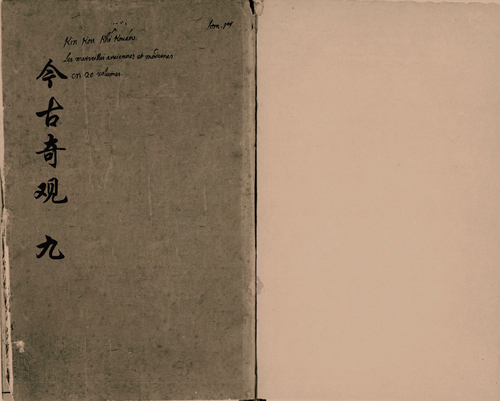 Kin Kou Khi Kouan.
Les merveilles anciennes et modernes
en 20 volumes.
tom. 1er
今古奇观 九